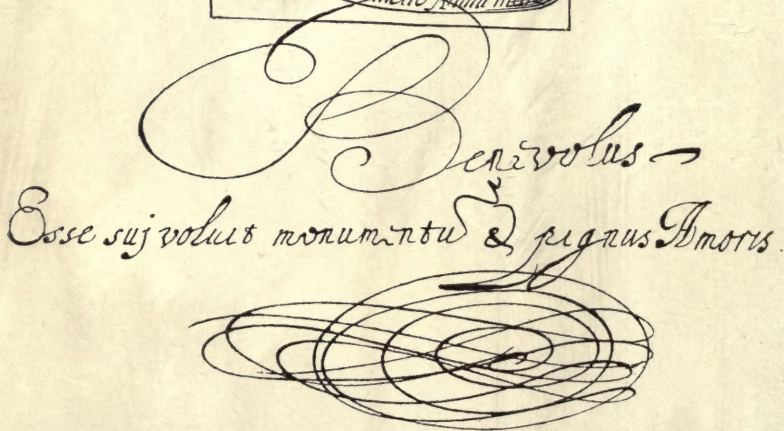 Benevolus
Esse suj voluit monumentũ & pignus Amoris.